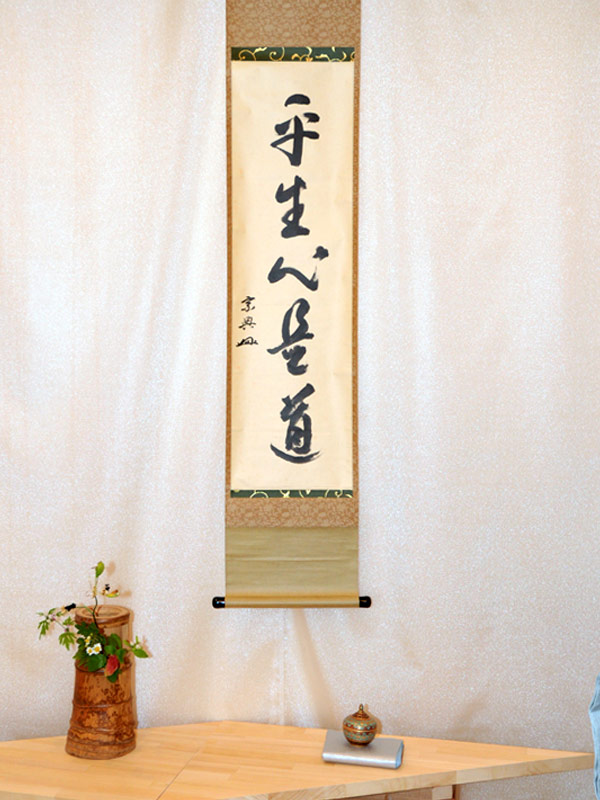 平生心是道
宗興